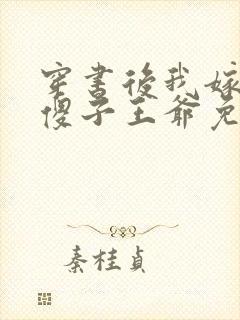 穿書後我嫁
傻子王爺免
秦桂貞